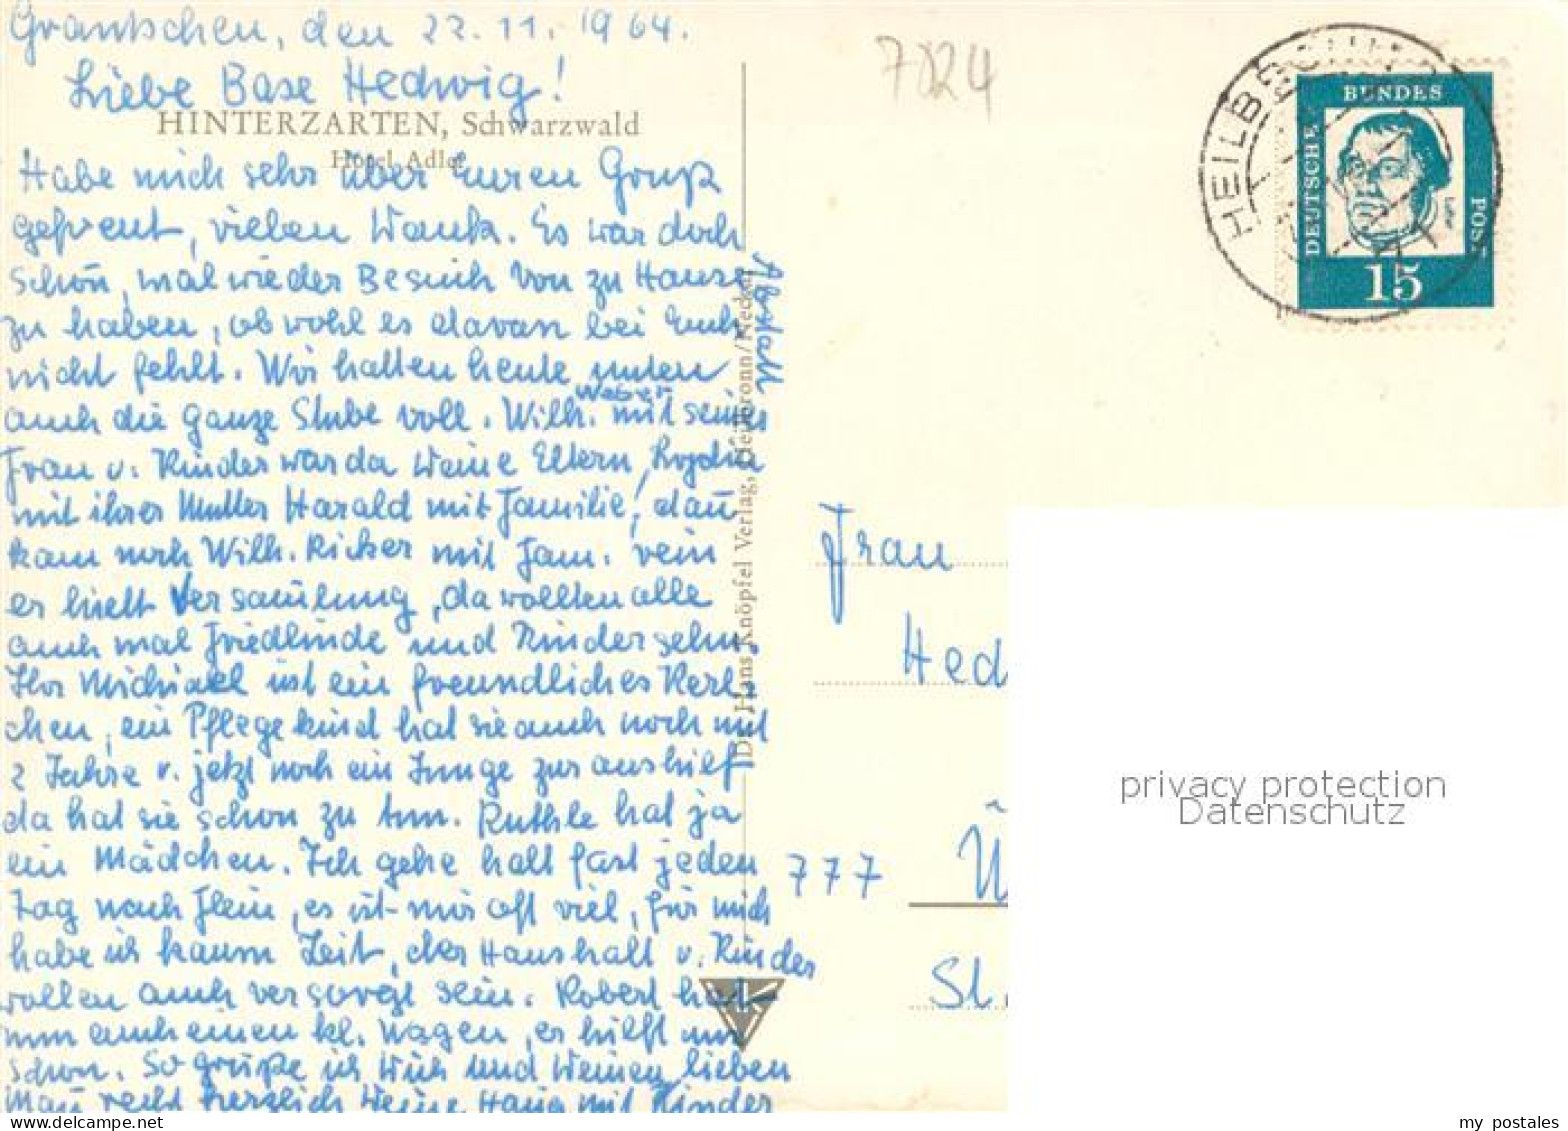 Grantschen, den 22.11.1964.
Liebe Base Hedwig!
HINTERZARTEN, Schwarzwald
Hotel Adler
Habe mich sehr über Euren Gruß
gefreut, vielen Dank. Es war doch
schön, mal wieder Besuch von zu Hause
zu haben, obwohl es davon bei Euch
nicht fehlt. Wir hatten heute unten
auch die ganze Stube voll. Wilh. Weber mit seiner
Frau u. Kinder war da Deine Eltern,
mit ihrer Mutter Harald mit Familie, dañ
kam noch Wilh. Ricker mit Fam. nein
er hielt Versam̄lung, da wollten alle
auch mal Friedlinde und Kinder sehn.
Ihr Michael ist ein freundliches Kerl-
chen, ein Pflegekind hat sie auch noch mit
2 Jahre u. jetzt noch ein Junge zur aushilf
da hat sie schon zu tun. Ruthle hat ja
ein Mädchen. Ich gehe halt fast jeden
Tag nach Flein, es ist mir oft viel, für mich
habe ich kaum Zeit, der Haushalt u. Kinder
wollen auch versorgt sein. Robert hat
nun auch einen kl. Wagen, er hilft mir
schon. So grüße ich Dich und Deinen lieben
Mañ recht herzlich Deine mit Kinder
Dr. Hans Knöpfel Verlag, Heilbronn/Neckar
K
7024
HEILBRONN
DEUTSCHE
BUNDES
POST
Luther
15
Frau
Hed
777 Ü
St.
privacy protection
Datenschutz
my postales
www.delcampe.net